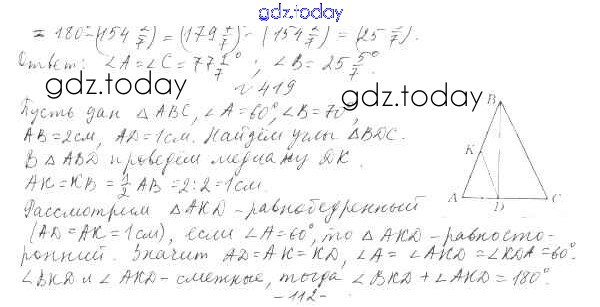 gdz.today
= 180° - (154 2/7) = (179 7/7)° - (154 2/7) = (25 5/7).
Ответ: ∠A = ∠C = 77 1/7°; ∠B = 25 5/7°.
gdz.today
gdz.today
№ 419
Пусть дан △ABC, ∠A = 60°, ∠B = 70°,
AB = 2см, AD = 1см. Найдём углы △BDC.
В △ABD проведём медиану DK.
AK = KB = 1/2 AB = 2:2 = 1см.
Рассмотрим △AKD - равнобедренный
(AD = AK = 1см), если ∠A = 60°, то △AKD - равносто-
ронний. Значит AD = AK = KD, ∠A = ∠AKD = ∠KDA = 60°.
∠BKD и ∠AKD - смежные, тогда ∠BKD + ∠AKD = 180°.
B
K
A
D
C
- 112 -